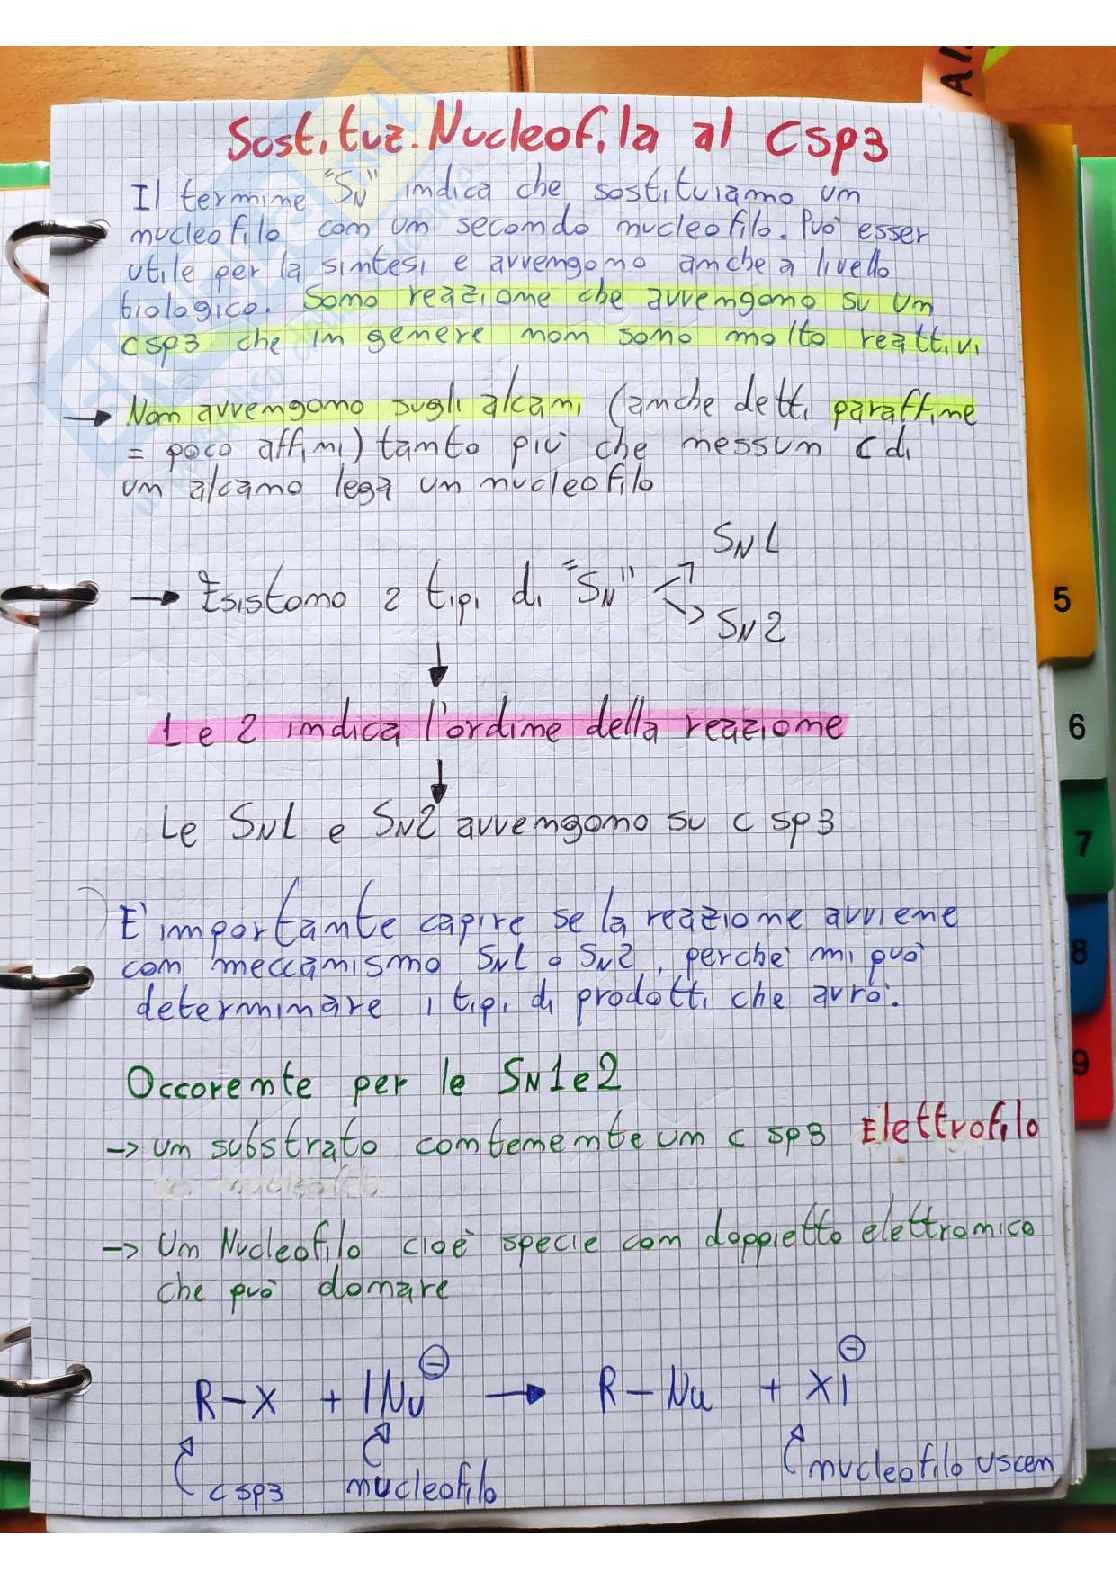 Sostituz. Nucleofila al Csp3
Il termine "SN" indica che sostituiamo un
nucleofilo con un secondo nucleofilo. Può esser
utile per la sintesi e avvengono anche a livello
biologico. Sono reazione che avvengono su un
csp3 che in genere non sono molto reattivi
→ Non avvengono sugli alcani (anche detti paraffine
= poco affini) tanto più che nessun C di
un alcano lega un nucleofilo
SN1
→ Esistono 2 tipi di "SN"
SN2
1 e 2 indica l'ordine della reazione
Le SN1 e SN2 avvengono su c sp3
E' importante capire se la reazione avviene
con meccanismo SN1 o SN2, perche' mi può
determinare i tipi di prodotti che avrò.
Occorente per le SN1e2
-> un substrato contenente un c sp3 Elettrofilo
-> Un Nucleofilo cioè specie con doppietto elettronico
che può donare
R-X + |Nu⊖ → R-Nu + X|⊖
csp3 nucleofilo nucleofilo uscen
5
6
7
8
9